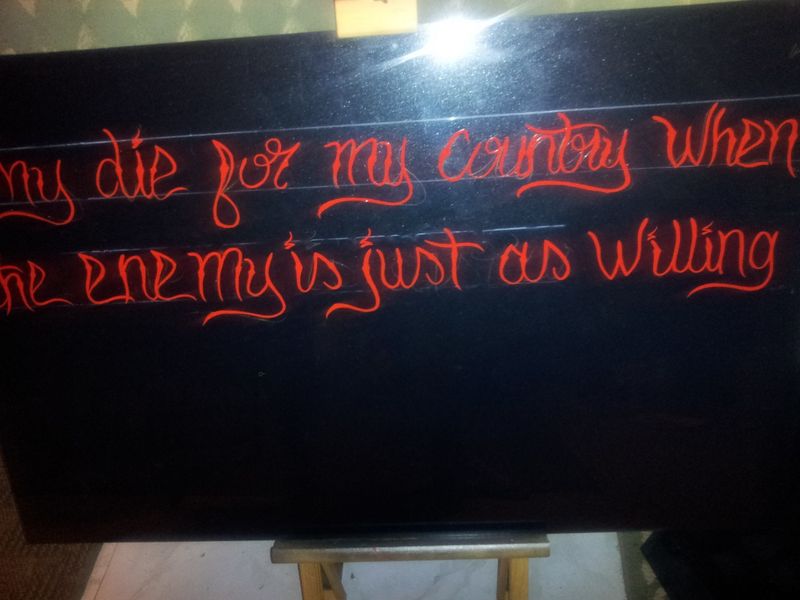 ny die for my country when
he enemy is just as willing